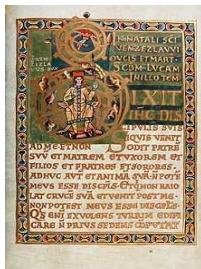 IN NATALI SCI
VENZEZLAVVI
DVCIS ET MART
SCDM LVCAM
IN ILLO TEM
DIXIT
IHC DIS
CIPVLIS SVIS
VENIT
AD ME ET NON ODIT PATRE
SVV ET MATREM ET VXOREM ET
FILIOS ET FRATRES ET SORORES
ADHVC AVT ET ANIMA SVA N POTE
MEVS ESSE DISCIPLS ET QVI N BAIO
LAT CRVCE SVA ET VENIT POST ME
NON POTEST MEVS ESSE DISCIPLS
QS ENI EX VOLENS TVRRIM EDIFI
CARE N PRIVS SEDENS COPVTAT